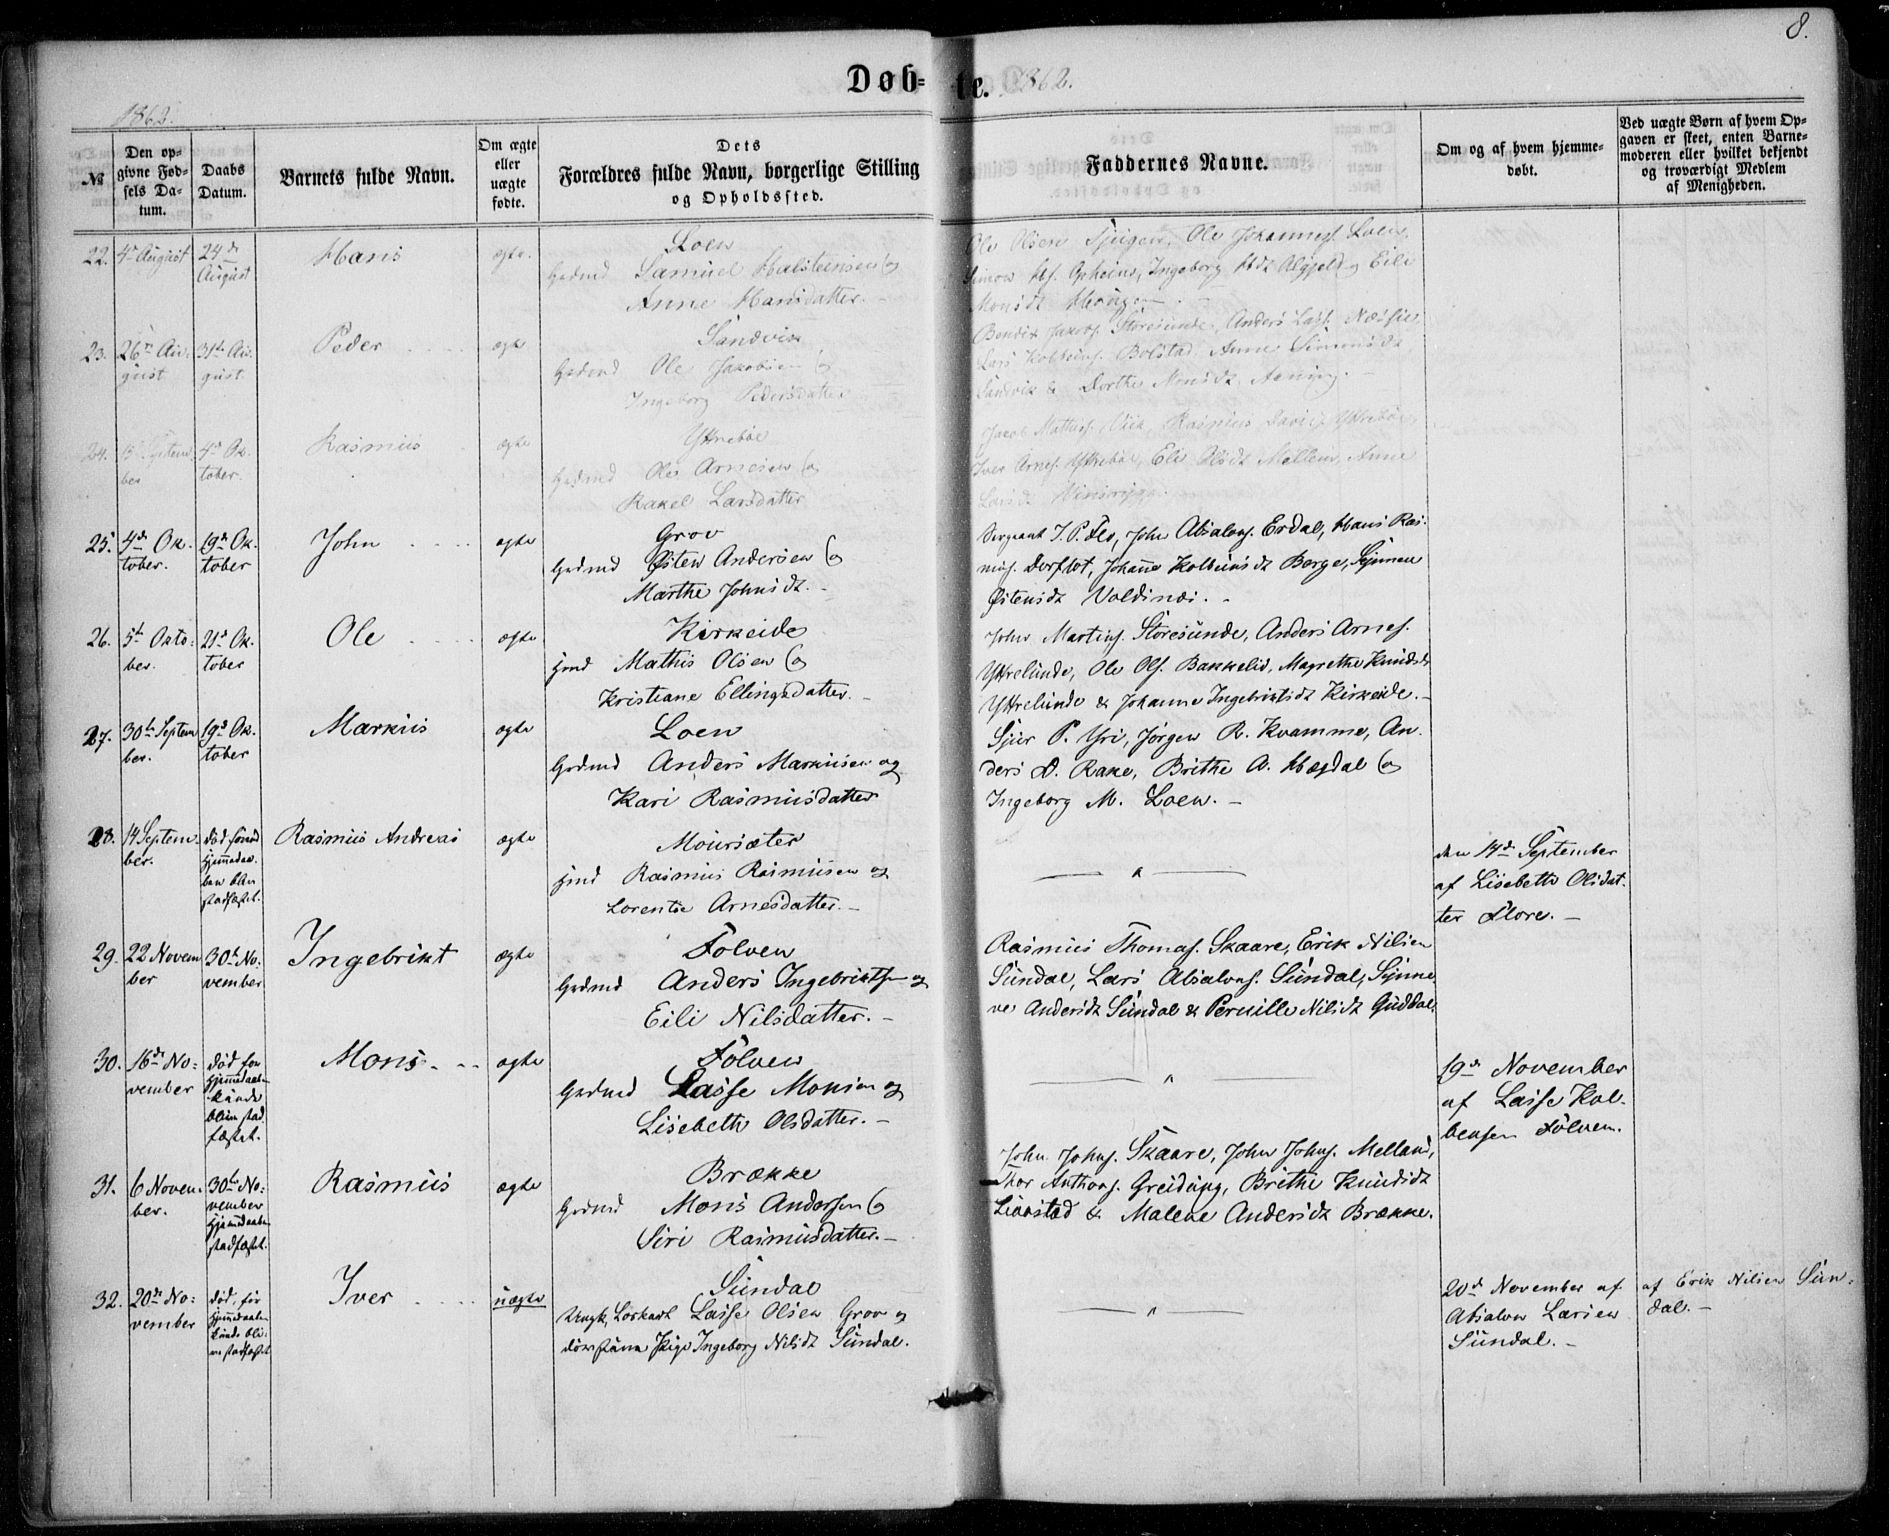 8.
Døbte. 1862.
1862.
№
Den opgivne Fødsels Datum.
Daabs Datum.
Barnets fulde Navn.
Om ægte eller uægte fødte.
Dets Forældres fulde Navn, borgerlige Stilling og Opholdssted.
Faddernes Navne.
Om og af hvem hjemmedøbt.
Ved uægte Børn af hvem Opgaven er skeet, enten Barnemoderen eller hvilket bekjendt og troværdigt Medlem af Menigheden.
22. 4de August
24de August
Hans
ægte.
Loen
Grdmd Samuel Halsteinsen og
Anne Hansdatter. -
Ole Olsen Tjugen, Ole Johannes. Loen,
Simon Opheim, Ingeborg og Eili
Monsdt Haugen.
23. 26de August
31te August
Peder
ægte
Sandvik
Grdmd Ole Jakobsen og
Ingeborg Pedersdatter
Bendix Jakobs. Storesunde, Anders Lass. Næssie
Lars Kolbeins. Bolstad, Anne Simonsdt
Sandvik & Dorthe Monsdt Aaning. -
24. September
4de Oktober.
Rasmus
ægte
Yttrebøe
Grdmd Ole Arnesen og
Rakel Larsdatter
Jacob Mathiss. Vik, Rasmus Davids. Yttrebøe,
Iver Arnes. Yttrebøe, Eli Olsdt Mellem, Anne
Larsdt
25. 4de Oktober.
19de Oktober
John
ægte
Grov
Grdmd Østen Andersen og
Marthe Johnsdt. -
Sergeant I. P. Flo, John Absalons. Erdal, Hans Rasmus. Dorflot, Johanne Kolbeinsdt Berge, Synneve
Østensdt Voldsnæs. -
26. 5te Oktober.
21de Oktober
Ole
ægte
Kirkeide
Hmd Mathis Olsen og
Kristiane Ellingsdatter. -
John Martins. Storesunde, Anders Arnes.
Yttrelunde, Ole Ols. Bakkelid, Magrethe Knudsdt
Yttrelunde & Johanne Ingebriktsdt Kirkeide. -
27. 30te September.
19de Oktober
Markus
ægte
Loen
Grdmd Anders Markusen og
Kari Rasmusdatter
Sjur P. Yri, Jørgen R. Kvamme, Anders D. Rake, Brithe A. Hægdal og
Ingeborg M. Loen. -
28. 14 September.
død førend Hjemmedaaben blev stadfæstet.
Rasmus Andreas
ægte
Moursæter
Hmd Rasmus Rasmusen og
Lorentse Arnesdatter. -
— " —
den 14de September
af Lisebeth Olsdatter Flore. -
29. 22 November
30te November
Ingebrikt
ægte
Folven
Grdmd Anders Ingebriktsen og
Eili Nilsdatter. -
Rasmus Thomas. Skaare, Erik Nilsen
Sundal, Lars Absalons. Sundal, Synneve Andersdt Sundal & Pernille Nilsdt Guddal.
30. 16de November
død før Hjemmedaaben kunde bliven stadfæstet.
Mons
ægte
Folven
Grdmd Lasse Monsen og
Lisebeth Olsdatter. -
— " —
19de November
af Lasse Kolbensen Folven.
31. 6 November.
30te November Hjemmedaaben stadfæstet.
Rasmus
ægte
Brække
Grdmd Mons Andersen og
Siri Rasmusdatter. -
John Johns. Skaare, John Johns. Melland,
Thor Anthons. Greidung, Brithe Knudsdt
Lianstad & Malene Andersdt Brække.
32. 20de November
død, før Hjemmedaaben kunde blive stadfæstet
Iver
uægte
Sundal
Ungk. Loskarl Lasse Olsen Grov og
Pige Ingeborg Nilsdt Sundal.
— " —
20de November af
Absalon Larsen
Sundal. -
af Erik Nilsen Sundal. -